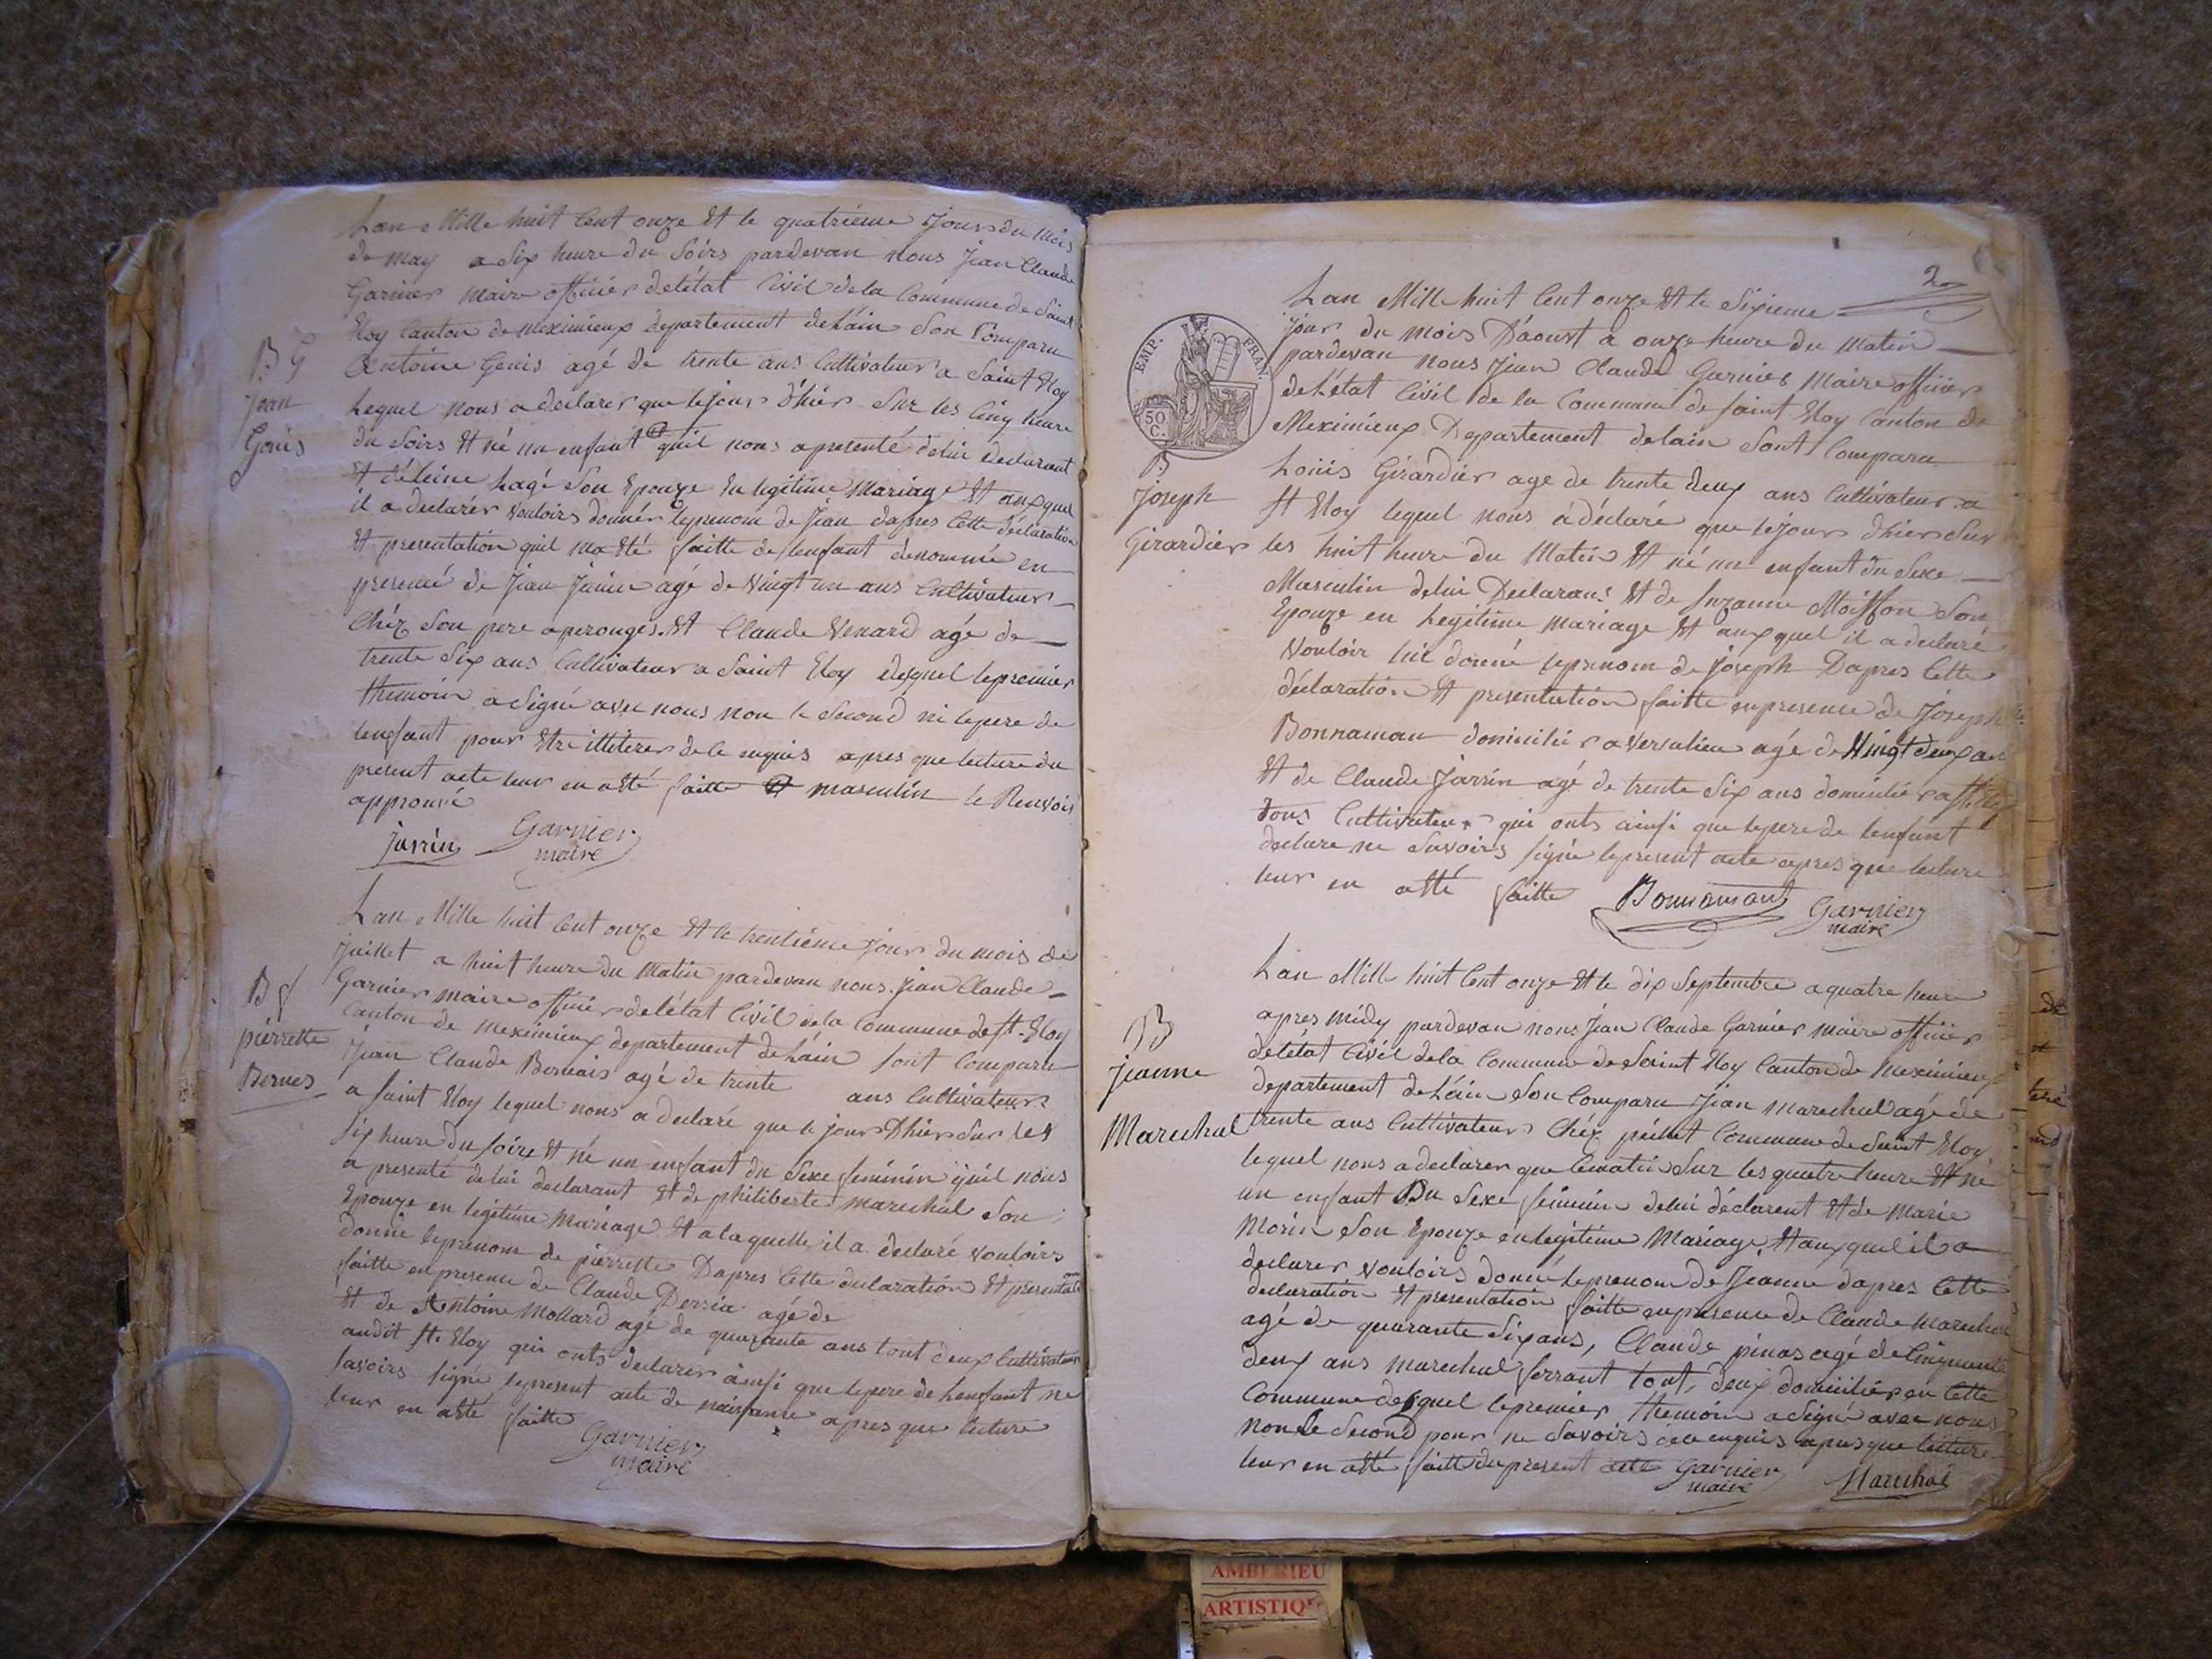 Lan Mille huit Cent onze Et le quatrieme Jour du Mois
de may a Six heure du Soirs pardevan nous Jean Claude
Garnier maire officier de létat Civil de la Commune de Saint
Eloy Canton de meximieux departement de Láin Son Comparu
Antoine Genis agé de trente ans Cultivateur a Saint Eloy
Lequel nous a declarer que le jour d'hier Sur les Cinq heure
du Soirs Et né un enfant quil nous a presenté de lui declarant
Et Son Epouze En legitime Mariage Et auxquel
il a declarér vouloirs donnér le prenom de Jean dapres Cette declaration
Et presentation quil ma Eté faitte de lenfant denommé en
presencé de Jean agé de vingt un ans Cultivateur
Chéz Son pere a perouges. Et Claude Venard agé de
trente Six ans Cultivateur a Saint Eloy desquel le premier
themoin a Signé avec nous non le Second ni le pere de
lenfant pour Etre illiterer de ce enquis apres que lecture du
present acte leur en a Eté faitte masculin le Renvois
approuvé
Garnier
maire
B
Jean
Genis
Lan Mille huit Cent onze Et le trentiéme jour du mois de
Juillet a huit heure du Matin pardevan nous Jean Claude
Garnier maire officier de létat Civil de la Commune de St. Eloy
Canton de meximieux departement de Láin Sont Comparu
Jean Claude agé de trente ans Cultivateur
a Saint Eloy lequel nous a declaré que le jour Dhier Sur les
Six heure du Soire Et né un enfant du Sexe feminin quil nous
a presenté de lui declarant Et de philiberte marechal Son
Epouze en legitime Mariage Et a laquelle il a declaré vouloirs
donné le prenom de pierrette Dapres Cette declaration Et presentation
faitte en presence de Claude Derria agé de
Et de Antoine Mollard agé de quarante ans tout deux Cultivateur
audit St. Eloy qui onts declarer ainsi que le pere de Lenfant ne
Savoirs Signé le present acte de naissance apres que lecture
leur en a Eté faitte
Garnier
maire
B
pierrette
Bernes
2
EMP. FRAN.
50
C.
Lan Mille huit Cent onze Et le Sixieme
jour du mois D'aoust a onze heure du Matin
pardevan nous Jean Claude Garnier Maire officier
de létat Civil de la Commune de Saint Eloy Canton de
Meximieux Departement de lain Sont Comparu
Louis Girardier age de trente deux ans Cultivateur a
St Eloy lequel nous a déclaré que le jour dhier Sur
les huit heure du Matin Et né un enfant du Sexe
Masculin de lui Declarant Et de Suzanne Moisson Son
Epouze en Legitime Mariage Et auxquel il a declaré
vouloir lui donné le prenom de Joseph Dapres Cette
déclaration Et presentation faitte en presence de Joseph
Bonnaman domicilier a Versalieu agé de Vingt deux an
Et de Claude Jarrin agé de trente Six ans domicilier a St Eloy
tous Cultivateur qui onts ainsi que le pere de lenfant
declare ne Savoirs Signé le present acte apres que lecture
leur en a Eté faitte Garnier
maire
B
Joseph
Girardier
Lan Mille huit Cent onze Et le dix Septembre a quatre heure
apres midy pardevan nous Jean Claude Garnier maire officier
de létat Civil de la Commune de Saint Eloy Canton de Meximieux
departement de Láin Son Comparu Jean marechal agé de
trente ans Cultivateur Chéz Commune de Saint Eloy
lequel nous a declarer que Cematin Sur les quatre heure Et né
un enfant Du Sexe feminin de lui déclarent Et de Marie
Morin Son Epouze en legitime Mariage. Et auxquel il a
declarer vouloirs donné le prenom de Jeanne dapres Cette
declaration Et presentation faitte en presence de Claude Marechal
agé de quarante Six ans, Claude pinas agé de Cinquante
deux ans marechal ferrant tout, deux domicilier en Cette
Commune desquel le premier themoin a Signé avec nous
non le Second pour ne Savoirs de ce enquis apres que lecture
leur en a Eté faitte du present acte Garnier
maire
Marechal
B
Jeanne
Marechal
AMBERIEU
ARTISTIQUE